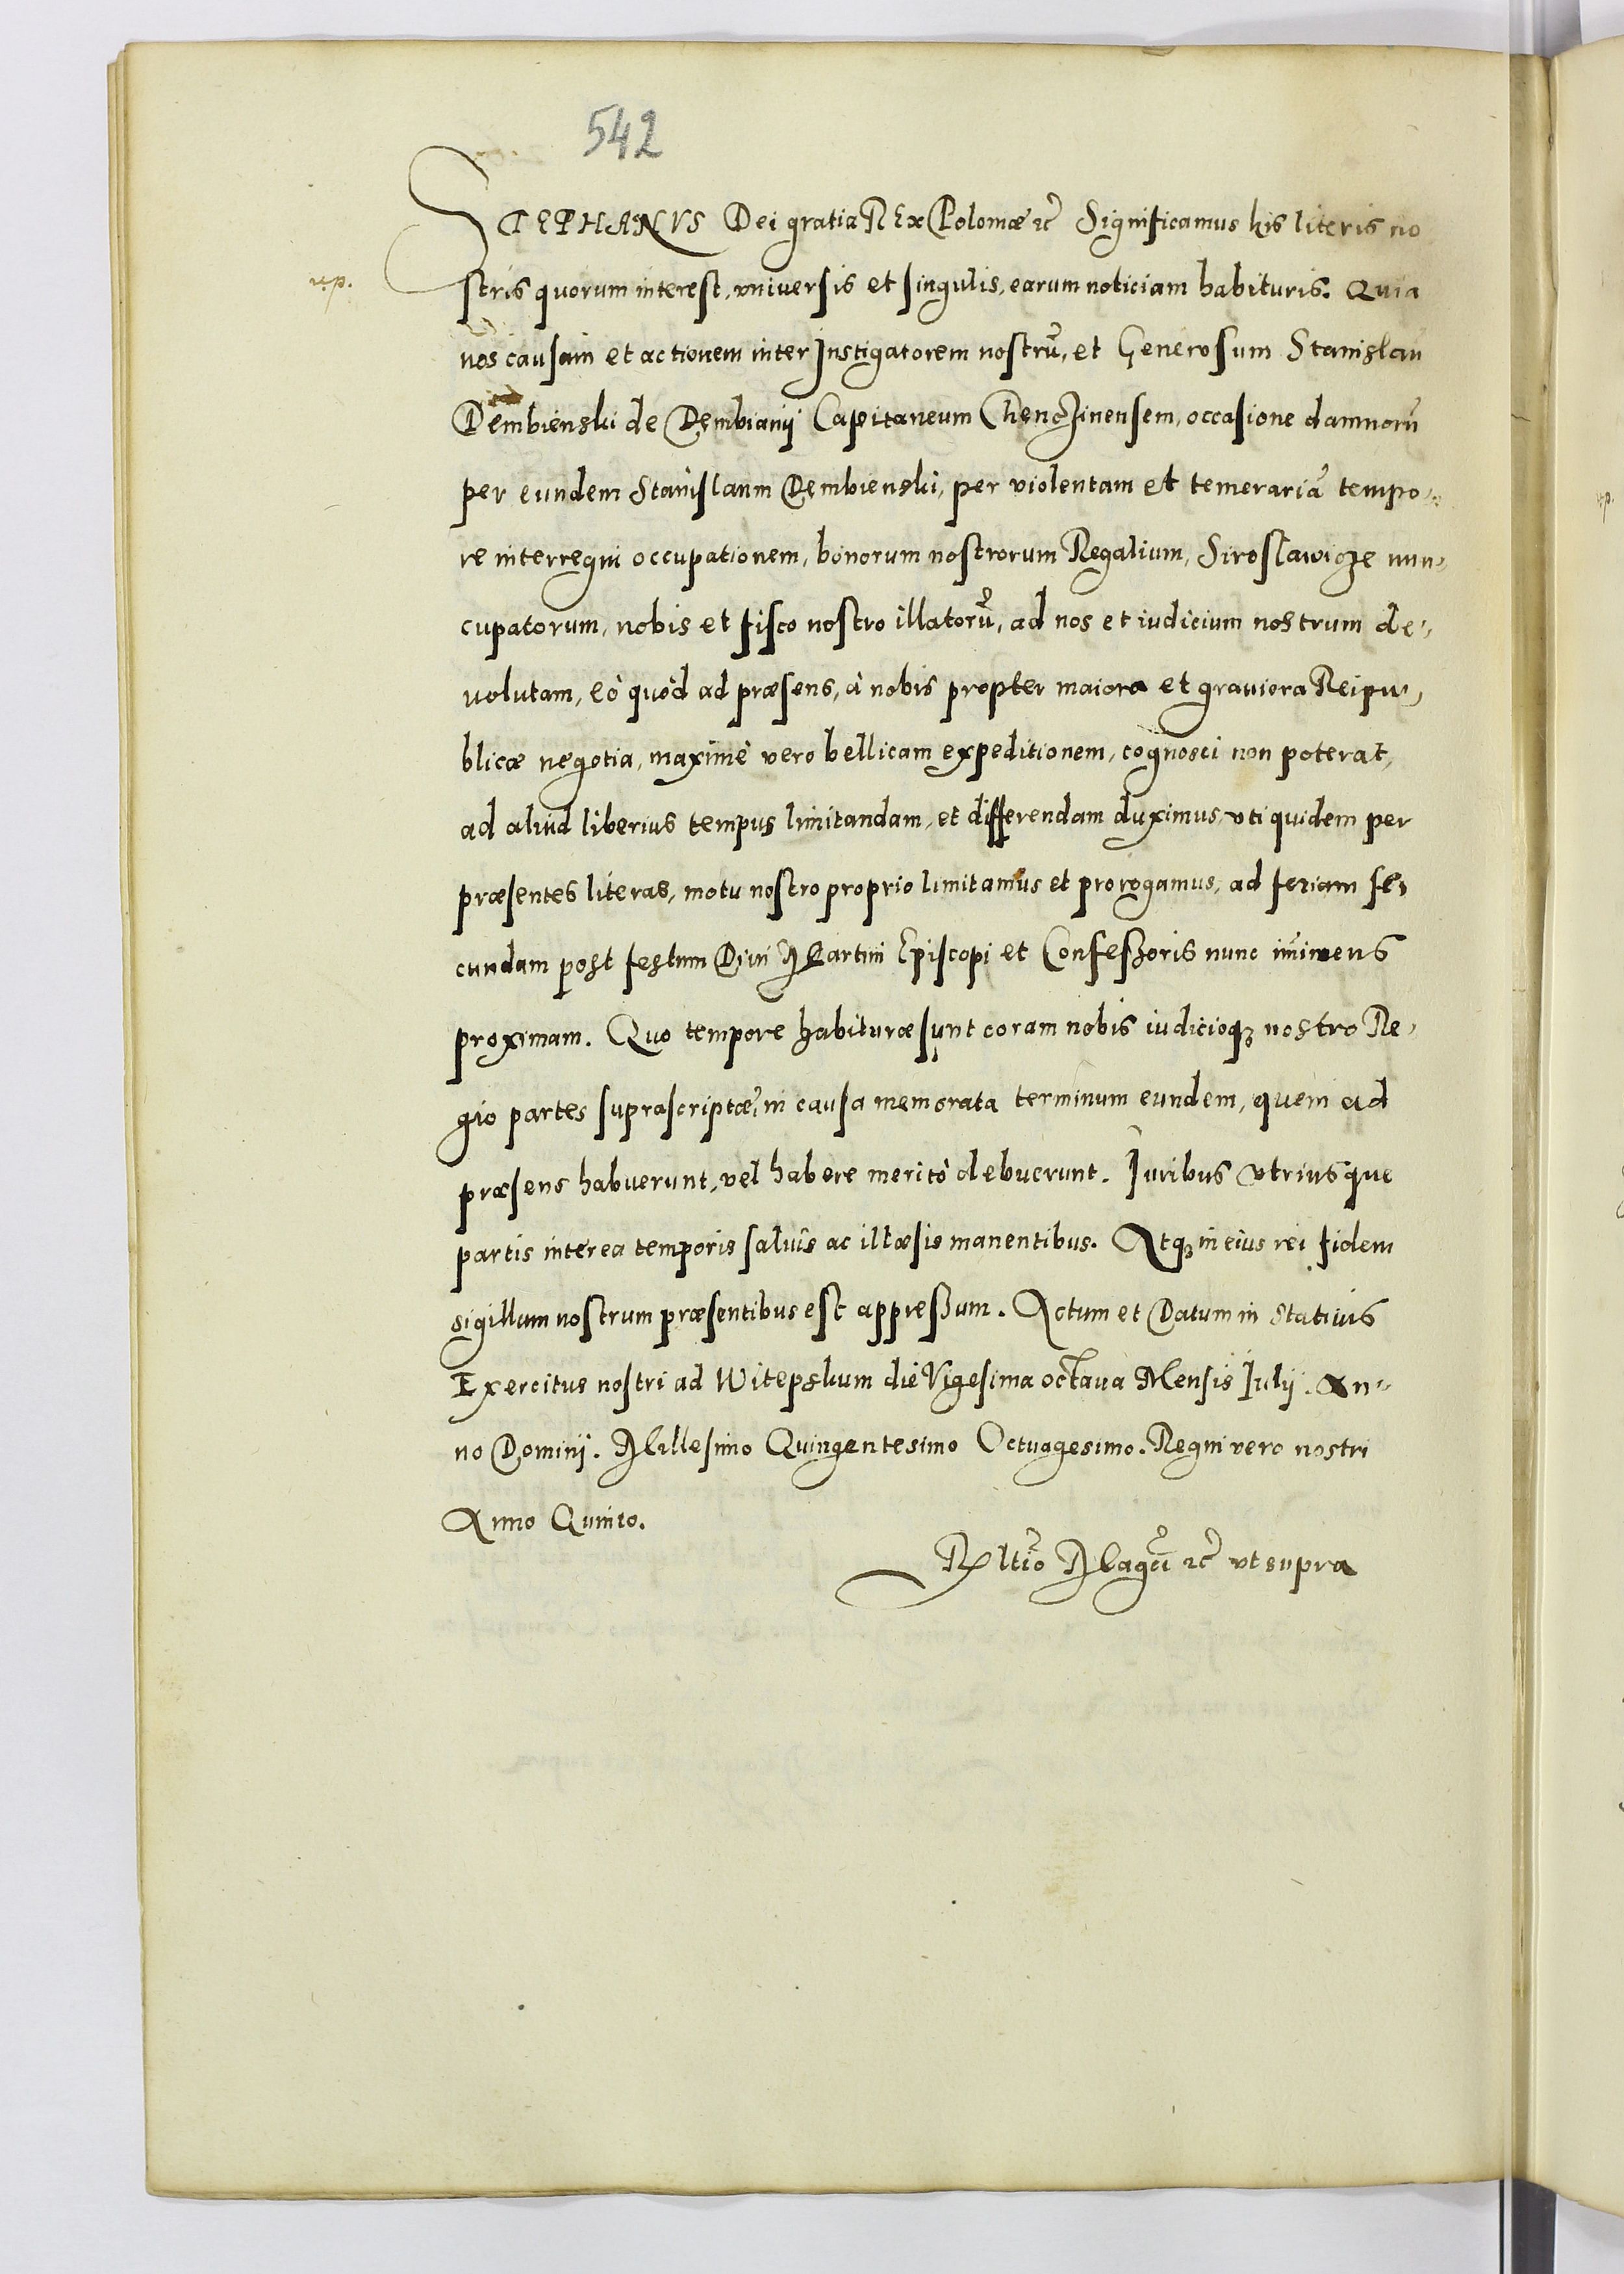 542
STEPHANVS Dei gratia REx Poloniæ ꝛc̃ Significamus his literis no
stris quorum interest, vniversis et singulis, earum noticiam habituris. Quia
nos causam et actionem inter Instigatorem nostrũ, et Generosum Stanislaũ
Dembienski de Dembianÿ Capitaneum Chenczinensem, occasione damnorũ
per eundem Stanislaum Dembienski, per violentam et temerariã tempo„
re interregni occupationem, bonorum nostrorum Regalium, Siroslawicze nun„
cupatorum, nobis et fisco nostro illatorũ, ad nos et iudicium nostrum de„
volutam, eò quòd ad præsens, à nobis propter maiora et graviora Reipu„
blicæ negotia, maximè vero bellicam expeditionem, cognosci non poterat,
ad aliud liberius tempus limitandam, et differendam duximus, vti quidem per
præsentes literas, motu nostro proprio limitamus et prorogamus, ad feriam se„
cundam post festum Divi Martini Episcopi et Confeßoris nunc im̃inens
proximam. Quo tempore habituræ sunt coram nobis iudicioqꝫ nostro Re„
gio partes suprascriptæ, in causa memorata terminum eundem, quem ad
præsens habuerunt, vel habere meritò debuerunt. Iuribus vtriusque
partis interea temporis salvis ac illæsis manentibus. Atqꝫ in eius rei fidem
sigillum nostrum præsentibus est appreßum. Actum et Datum in Stativis
Exercitus nostri ad Witepskum die Vigesima octava Mensis Iulÿ. An„
no Dominÿ. Millesimo Quingentesimo Octuagesimo. Regni vero nostri
Anno Quinto.
Rltio Magcĩ ꝛc̃ vt supra